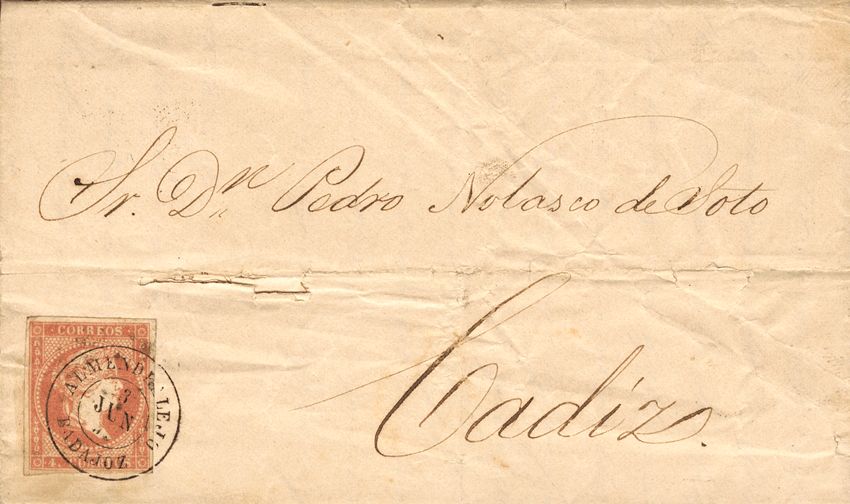 Sr. Dn Pedro Nolasco de Soto
Cadiz.
CORREOS
ALMENDRALEJO
3
JUN
BADAJOZ
4